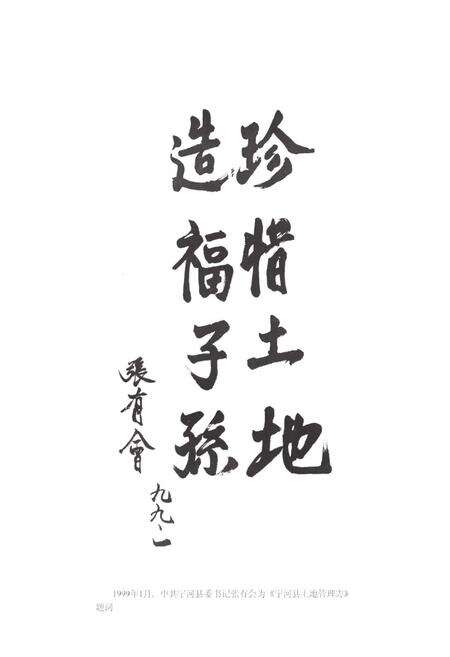 珍惜土地
造福子孙
張有會
九九、一
1999年1月，中共宁河县委书记张有会为《宁河县土地管理志》
题词